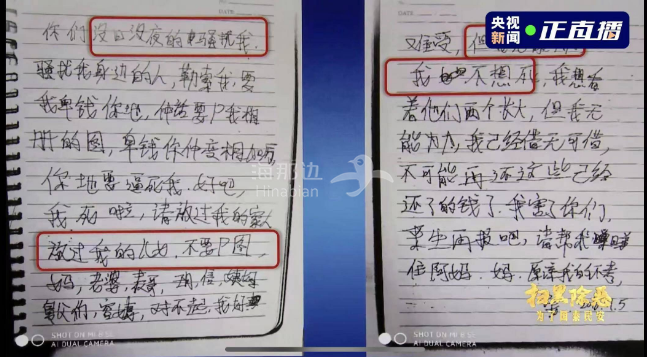 DATE
央视新闻 正直播
你们没日没夜的骚扰我,
骚扰我身边的人,勒索我,要
我单钱你地,仲话要P我相
册的图,单钱你仲变相加倍
你地要逼死我.好吧,
我死啦,请放过我的家人
放过我的父母,不要P图,
妈,老婆,表哥,
对不起,我好
又难受,但
我 不想死,我想看
着他们两个长大,但我无
能为力,我已经借无可借,
不可能再还这些已经
还了的钱了.我害了你们,
来生再报吧,请帮我
住阿妈.妈,原谅我的不孝,
海那边
Hinabian
扫黑除恶
为了国泰民安
SHOT ON MI 8 SE
AI DUAL CAMERA
SHOT ON MI 8 SE
AI DUAL CAMERA